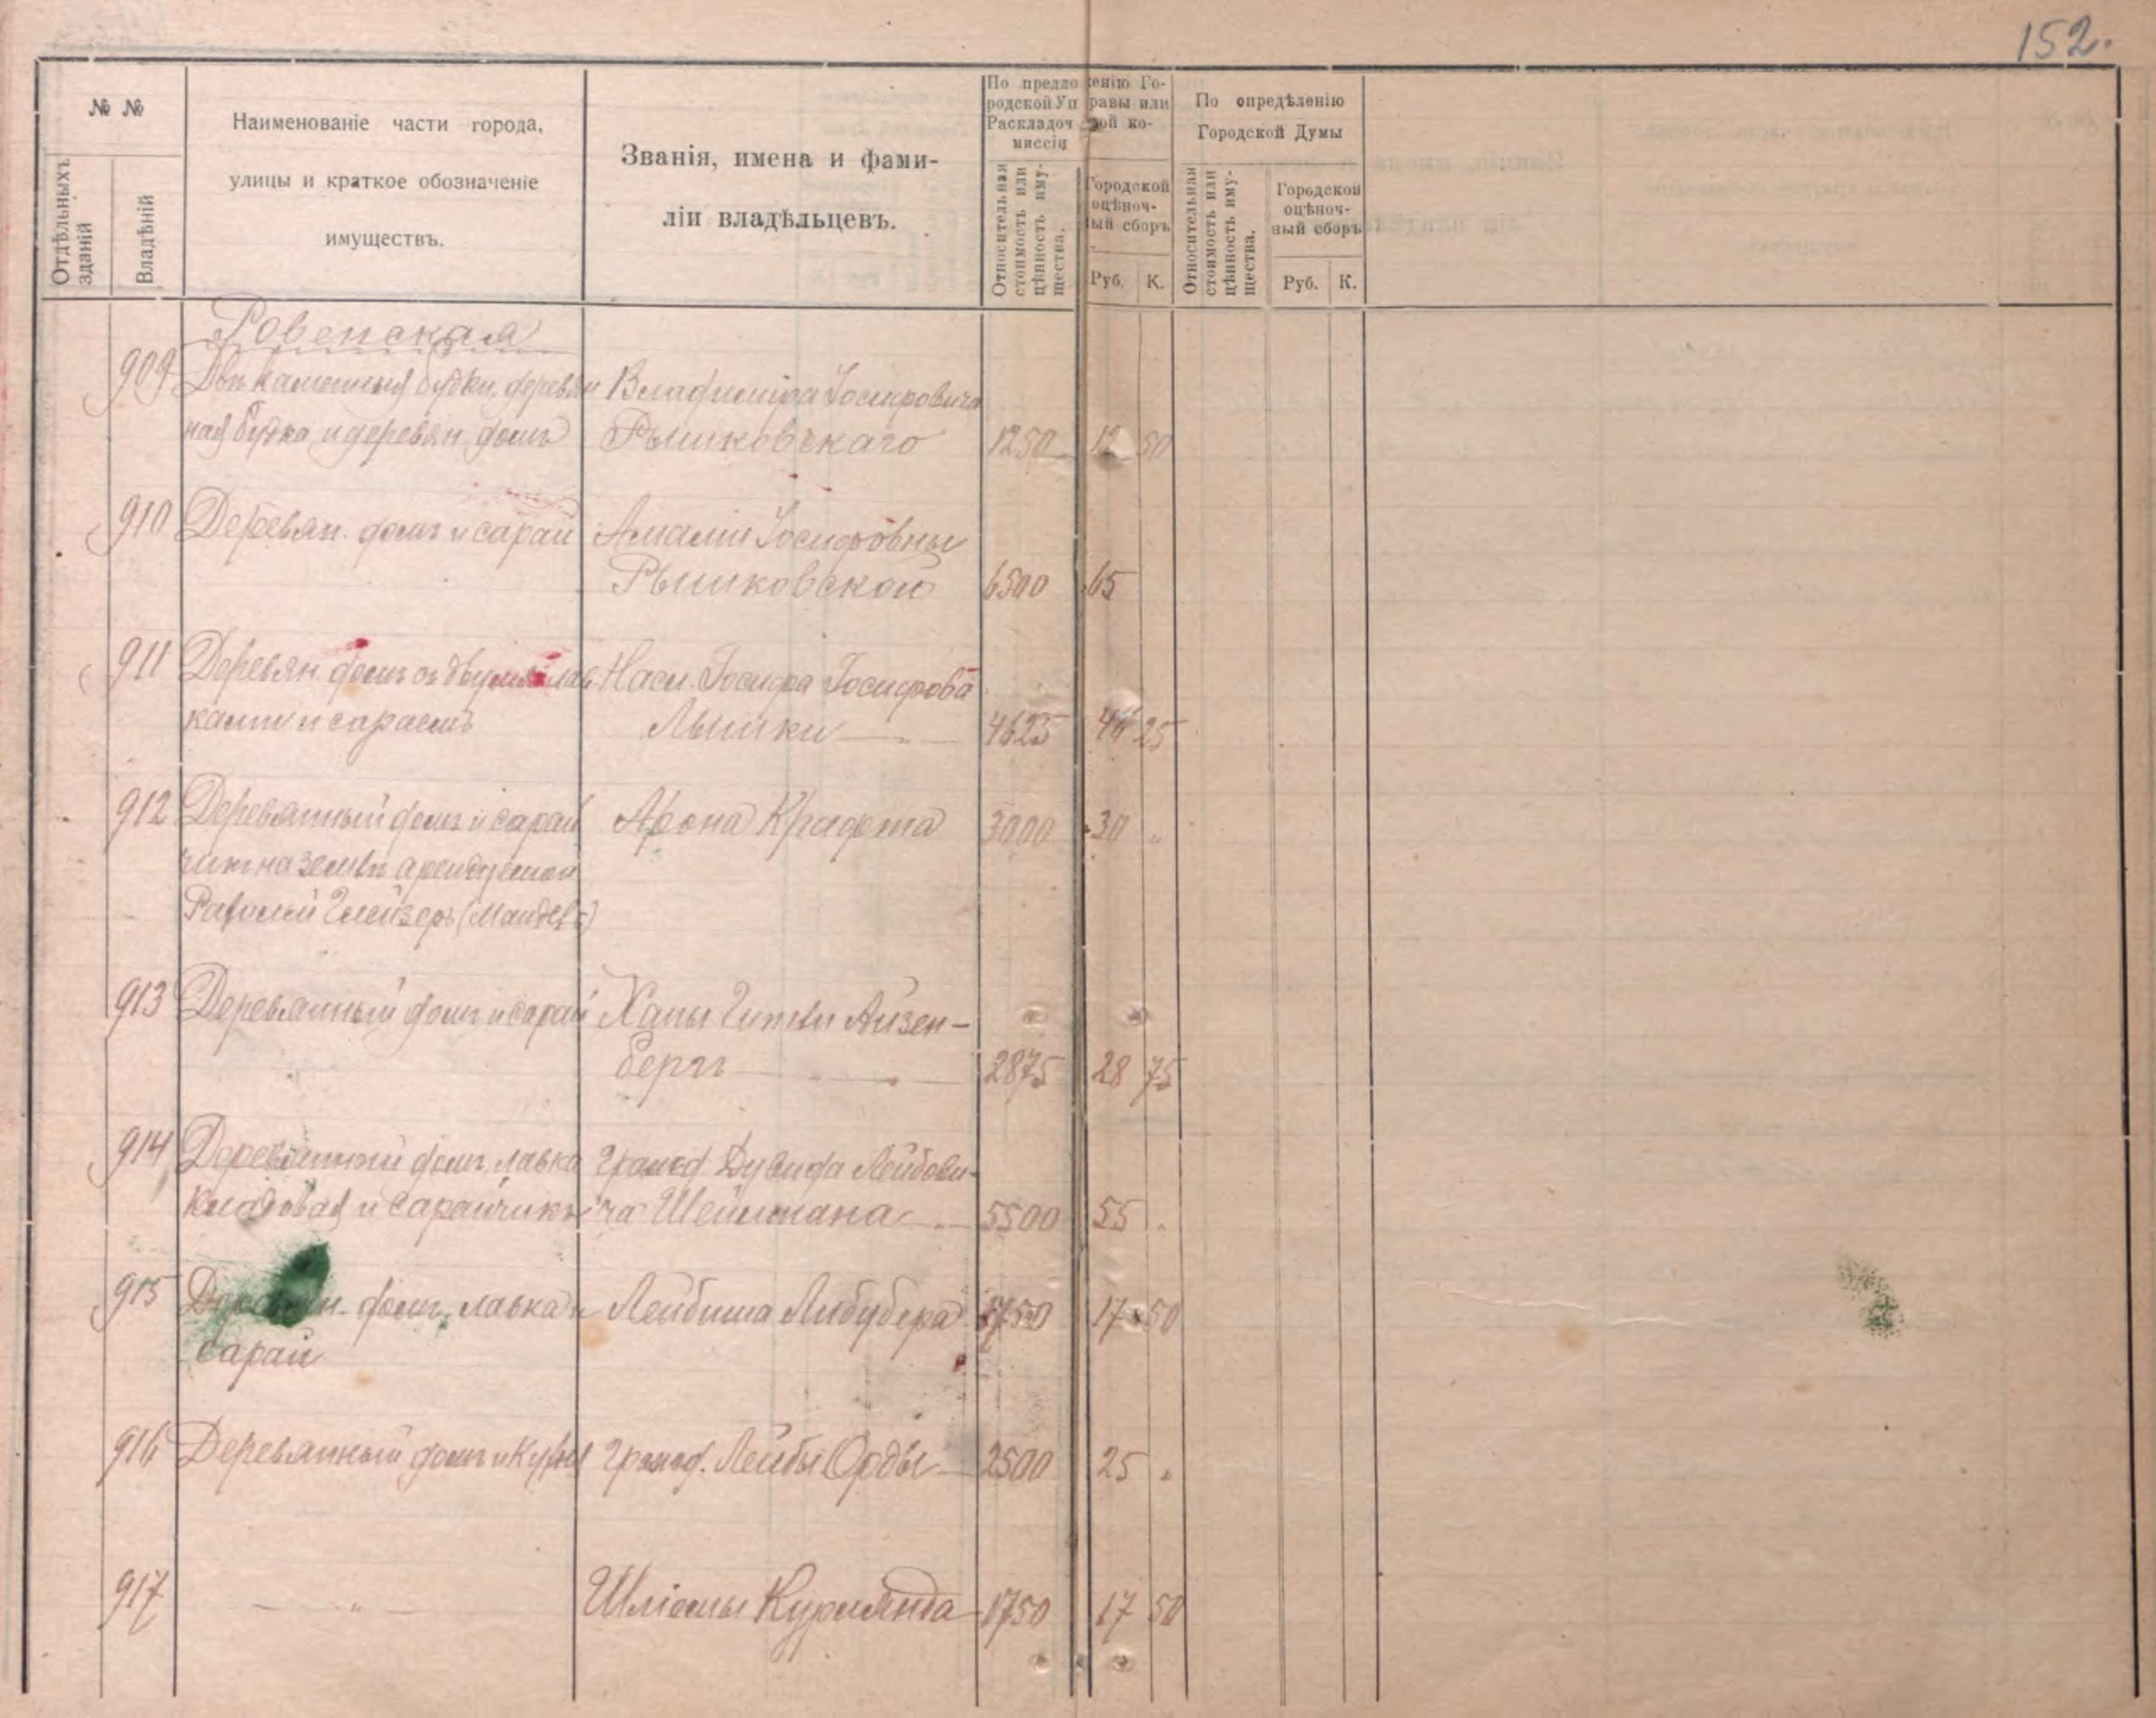 152.
№ №
Отдѣльныхъ зданій
Владѣній
Наименованіе части города,
улицы и краткое обозначеніе
имуществъ.
Званія, имена и фами-
ліи владѣльцевъ.
По предложенію Го-
родской Управы или
Раскладочной ко-
миссіи
Относительная
стоимость или
цѣнность иму-
щества.
Городской
оцѣноч-
ный сборъ
Руб. К.
По опредѣленію
Городской Думы
Относительная
стоимость или
цѣнность иму-
щества.
Городской
оцѣноч-
ный сборъ
Руб. К.
Ровенская
909 Двѣ каменныя будки, деревян Владиміра Іосифовича
ная будка и деревян. домъ Рышковскаго 1250 12 50
910 Деревян. домъ и сарай Амаліи Іосифовны
Рышковской 6500 65
911 Деревян. домъ съ двумя лав Насл. Іосифа Іосифова
ками и сараемъ Лышки 4625 46 25
912 Деревянный домъ и сарай Арона Крафта 3000 30 "
чикъ на землѣ арендуемой
Глейзеръ
913 Деревянный домъ и сарай Ханы Гитли Айзен-
бергъ 2875 28 75
914 Деревянный домъ, лавка Дувида Лейбови-
кладовая и сарайчикъ ча Шейнмана 5500 55 "
915 Деревян. домъ, лавка и Лейбиша 1750 17 50
сарай
916 Деревянный домъ и Лейбы Орды 2500 25 "
917 — " — Шліомы Курлянда 1750 17 50